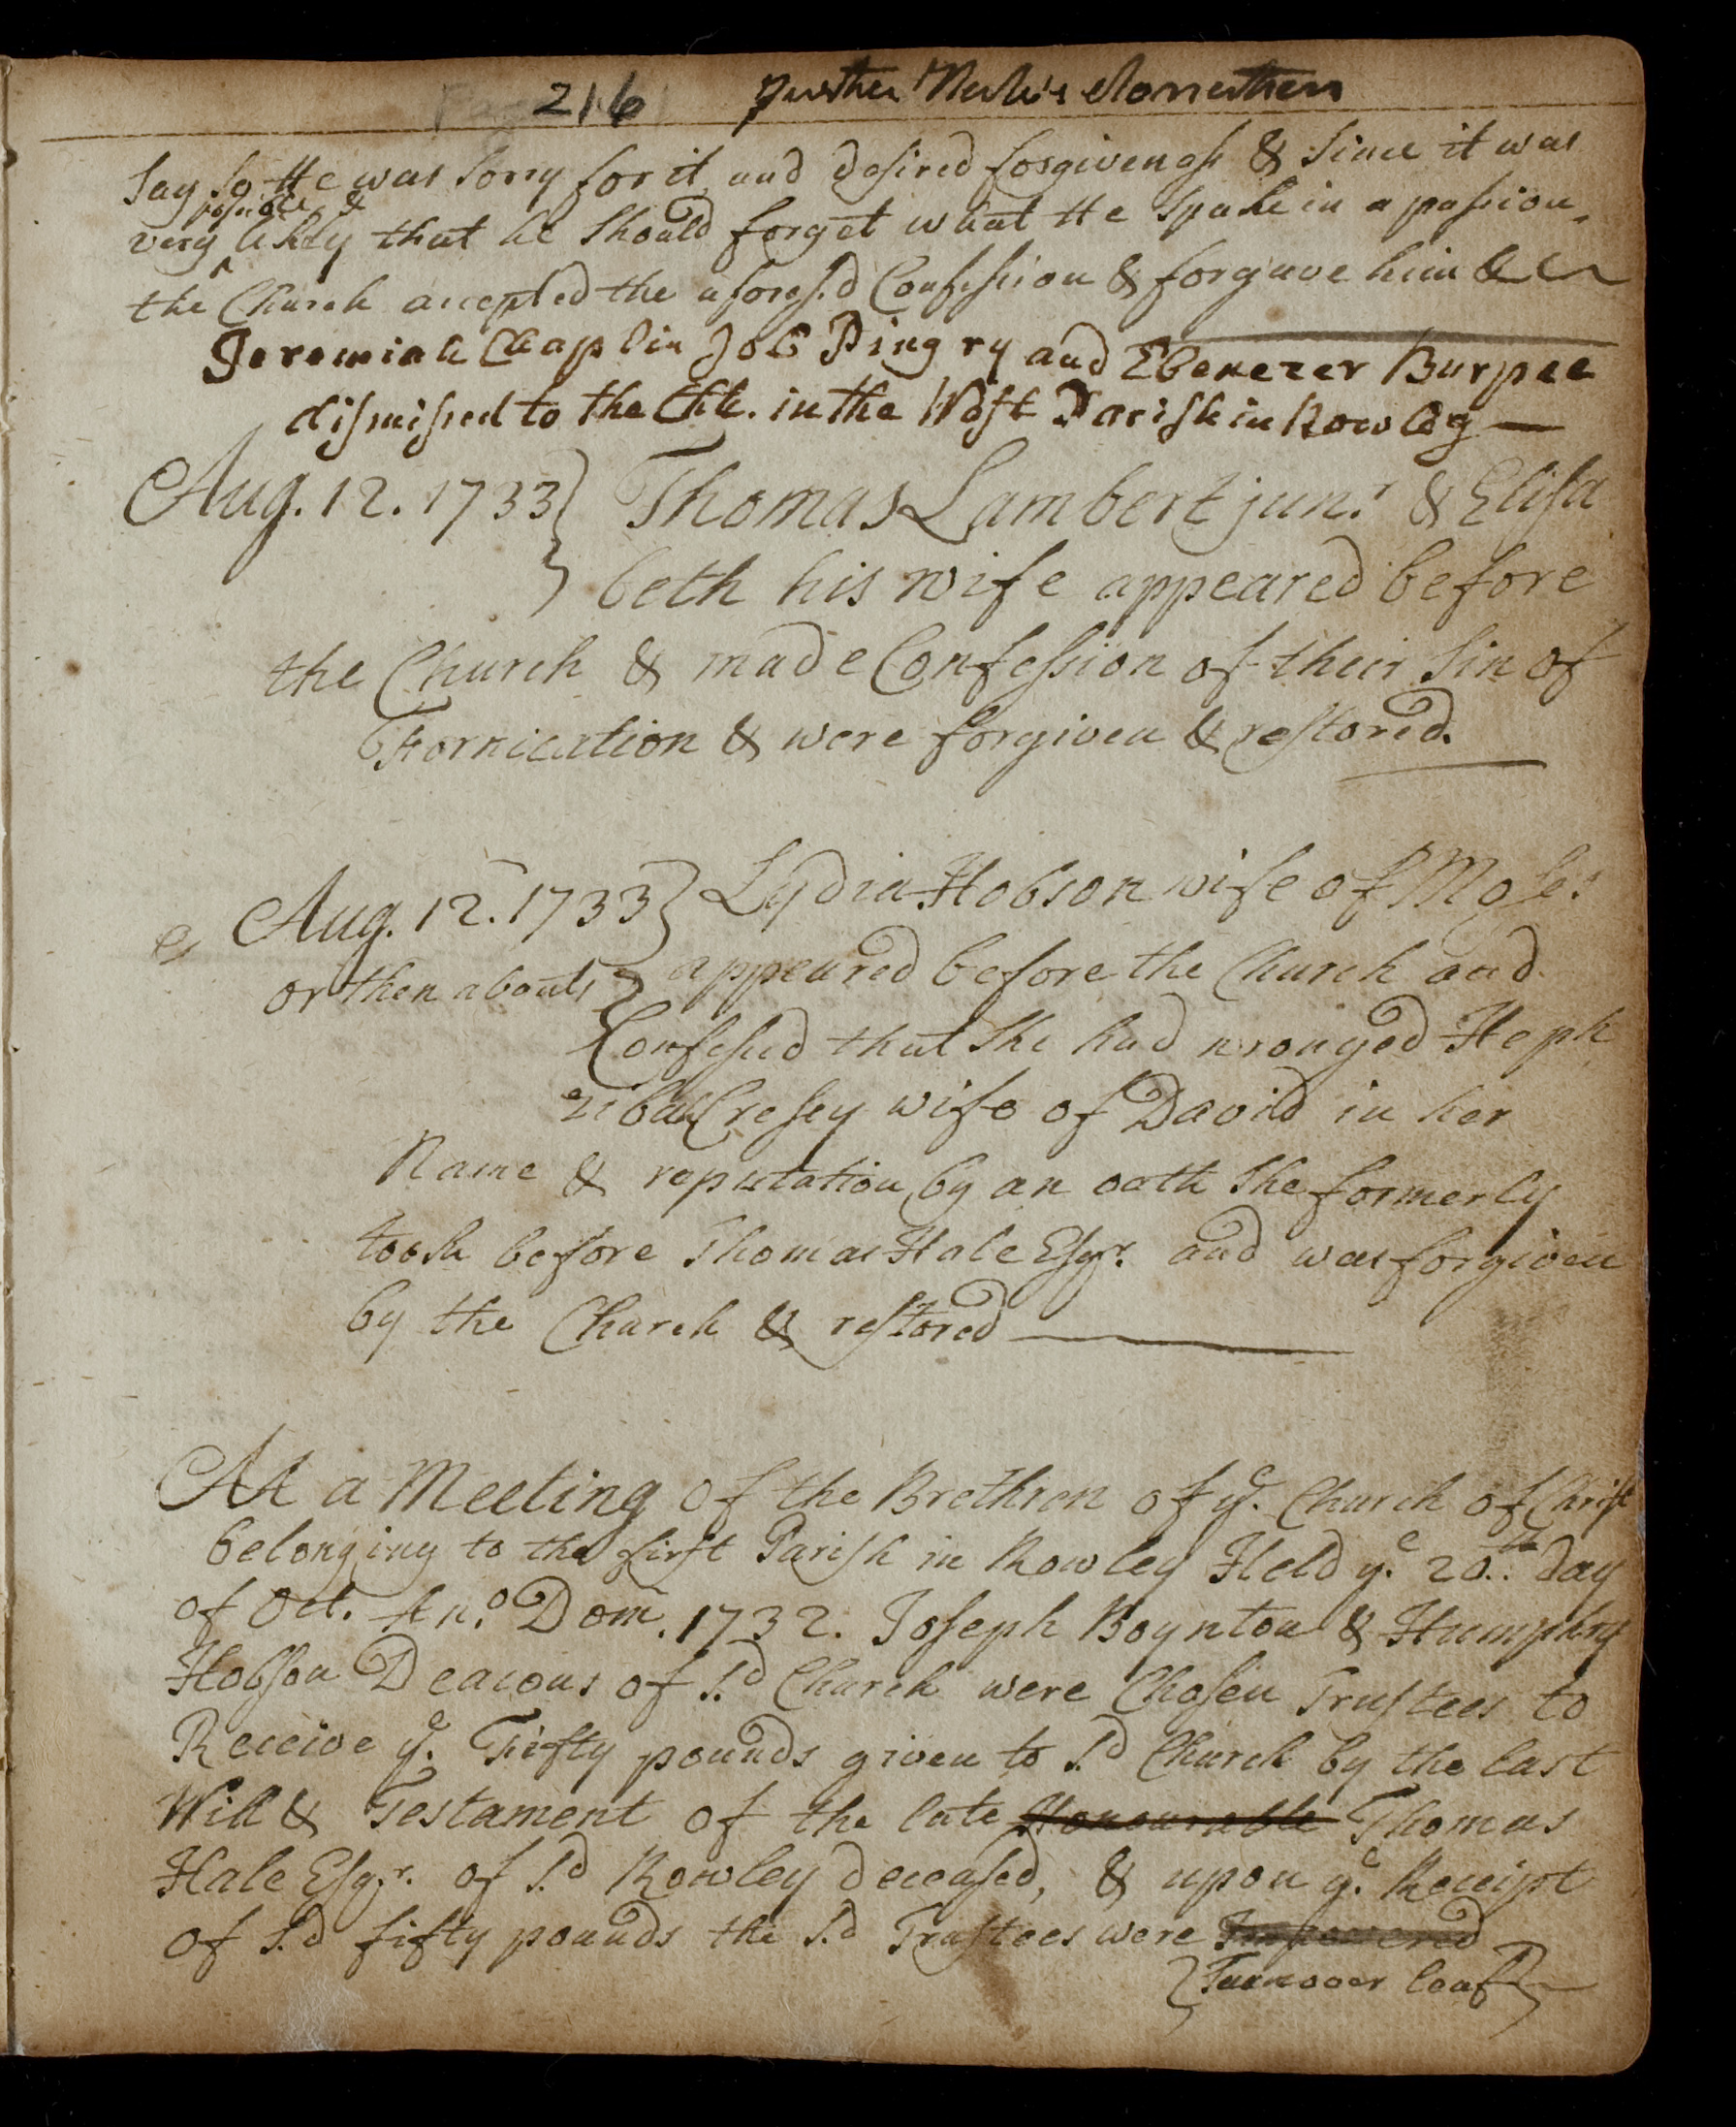 216
say so He was sorry for it and desired forgiveness & since it was
possible &
very likely that he should forget what He spake in a passion,
the Church accepted the aforesd Confession & forgave him &c
Jeremiah Chaplin Job Pingry and Ebenezer Burpee
dismissed to the Chh. in the West Parish in Rowley —
Aug. 12. 1733} Thomas Lambert junr. & Elisa
beth his wife appeared before
the Church & made Confession of their Sin of
Fornication & were forgiven & restored.
Aug. 12. 1733} Lydia Hobson wife of Moses
or then abouts} appeared before the Church and
Confessed that She had wronged Heph
zibah Cressey wife of David in her
Name & reputation by an oath She formerly
took before Thomas Hale Esqr. and was forgiven
by the Church & restored —
At a Meeting of the Brethren of ye. Church of Christ
belonging to the first Parish in Rowley Held ye. 20th. day
of Oct. Ano. Dom. 1732. Joseph Boynton & Humphry
Hobson Deacons of sd. Church were Chosen Trustees to
Receive ye. Fifty pounds given to sd. Church by the last
Will & Testament of the late Honourable Thomas
Hale Esqr. of sd. Rowley deceased, & upon ye. Receipt
of sd. fifty pounds the sd. Trustees were Impowered
{Turn over leaf}